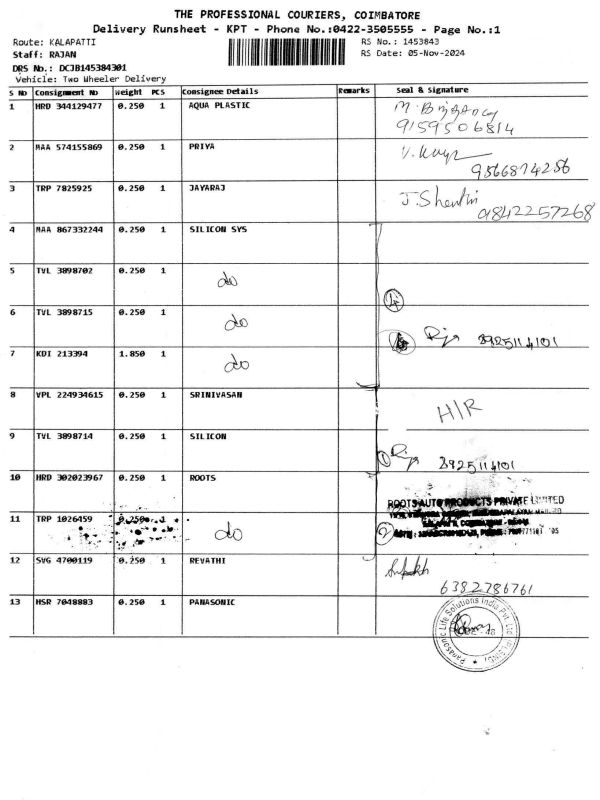 THE PROFESSIONAL COURIERS, COIMBATORE
Delivery Runsheet - KPT - Phone No.:0422-3505555 - Page No.:1
Route: KALAPATTI RS No.: 1453843
Staff: RAJAN RS Date: 05-Nov-2024
DRS No.: DCJB145384301
Vehicle: Two Wheeler Delivery
S No Consignment No Weight PCS Consignee Details Remarks Seal & Signature
1 HRD 344129477 0.250 1 AQUA PLASTIC
9159506814
2 MAA 574155869 0.250 1 PRIYA
9566874256
3 TRP 7825925 0.250 1 JAYARAJ J. Shentin
9842257268
4 MAA 867332244 0.250 1 SILICON SYS
5 TVL 3898702 0.250 1 do
4
6 TVL 3898715 0.250 1 do
8925114101
7 KDI 213394 1.850 1 do
8 VPL 224934615 0.250 1 SRINIVASAN H/R
9 TVL 3898714 0.250 1 SILICON
1 8925114101
10 HRD 302023967 0.250 1 ROOTS
ROOTS AUTO PRODUCTS PRIVATE LIMITED
11 TRP 1026459 0.250 1 do
2
12 SVG 4700119 0.250 1 REVATHI
6382786761
13 HSR 7048883 0.250 1 PANASONIC
Panasonic Life Solutions India Pvt. Ltd.